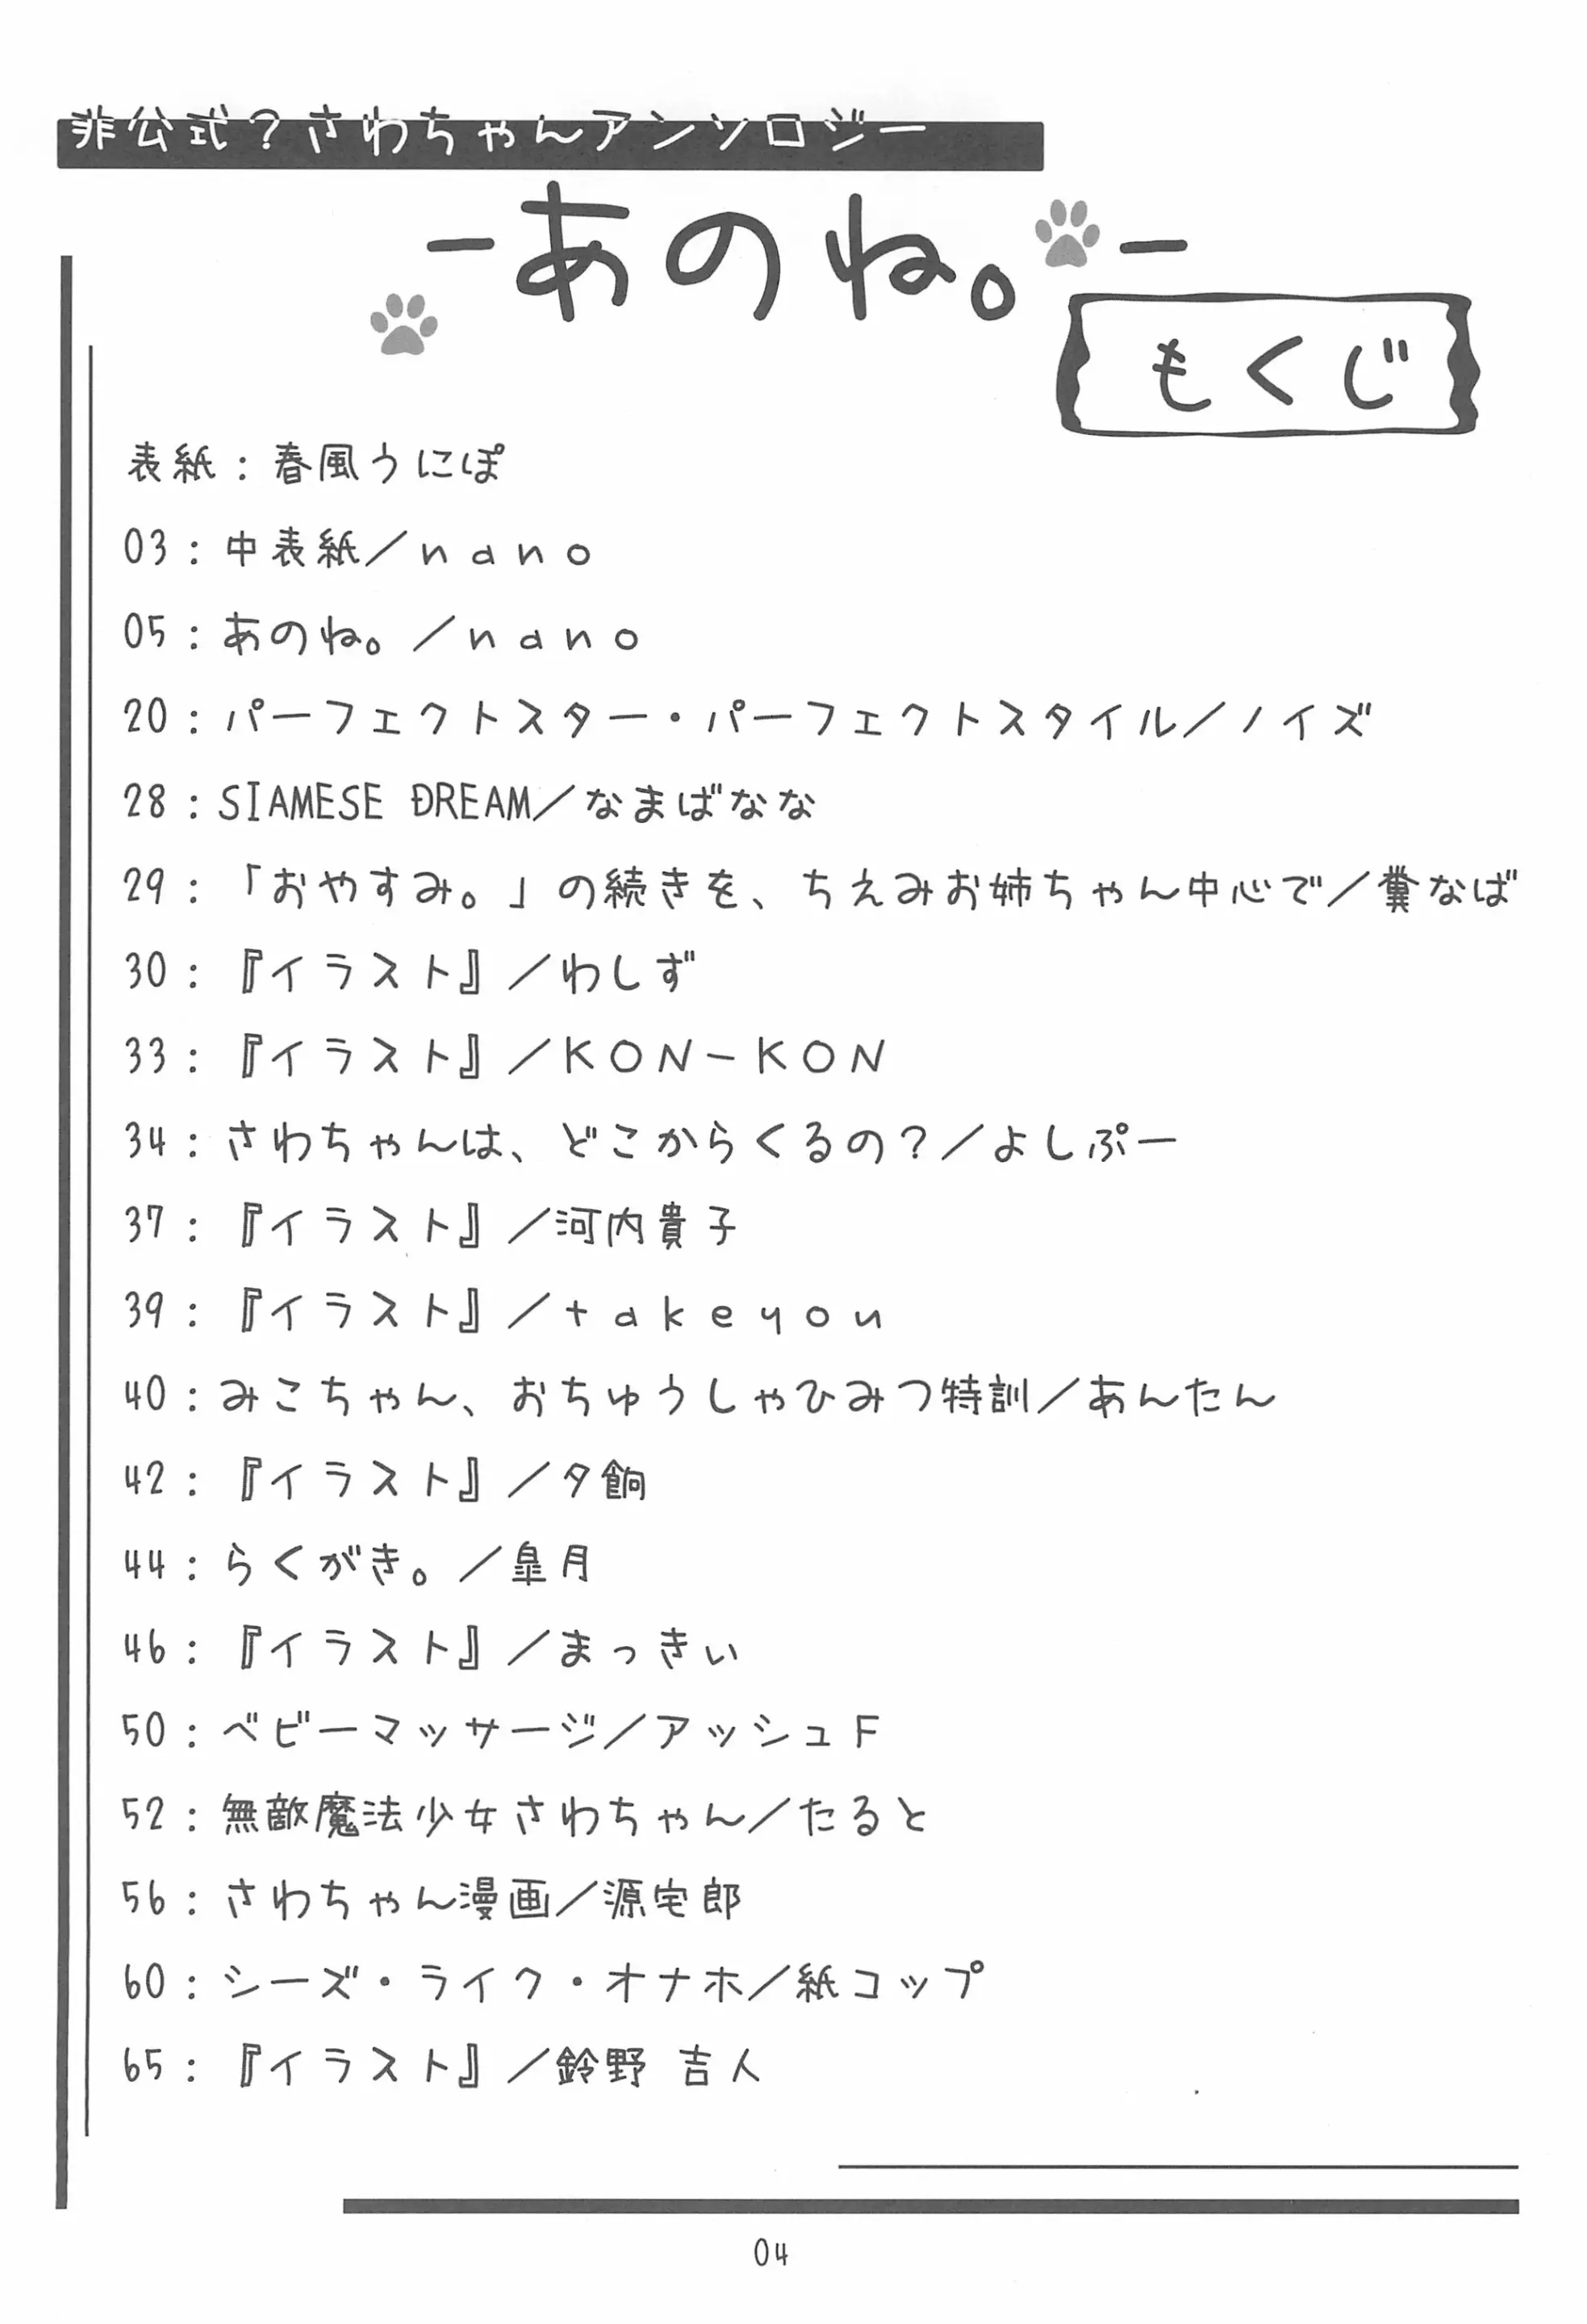 非公式？さわちゃんアンソロジー
－あのね。－
もくじ
表紙：春風うにぽ
03：中表紙／ｎａｎｏ
05：あのね。／ｎａｎｏ
20：パーフェクトスター・パーフェクトスタイル／ノイズ
28：SIAMESE DREAM／なまばなな
29：「おやすみ。」の続きを、ちえみお姉ちゃん中心で／糞なば
30：『イラスト』／わしず
33：『イラスト』／ＫＯＮ－ＫＯＮ
34：さわちゃんは、どこからくるの？／よしぷー
37：『イラスト』／河内貴子
39：『イラスト』／ｔａｋｅｙｏｕ
40：みこちゃん、おちゅうしゃひみつ特訓／あんたん
42：『イラスト』／夕餉
44：らくがき。／皐月
46：『イラスト』／まっきぃ
50：ベビーマッサージ／アッシュＦ
52：無敵魔法少女さわちゃん／たると
56：さわちゃん漫画／源宅郎
60：シーズ・ライク・オナホ／紙コップ
65：『イラスト』／鈴野 吉人
04